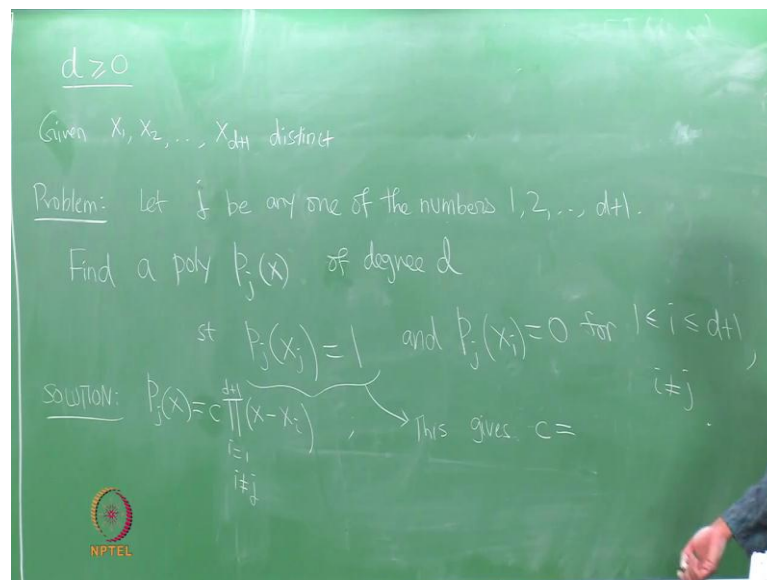 d ≥ 0
Given x₁, x₂, ..., x_{d+1} distinct
Problem: Let j be any one of the numbers 1, 2, ..., d+1.
Find a poly P_j(x) of degree d
st P_j(x_j) = 1 and P_j(x_i) = 0 for 1 ≤ i ≤ d+1,
i ≠ j
SOLUTION: P_j(x) = c ∏_{i=1, i≠j}^{d+1} (x - x_i), This gives c =
NPTEL